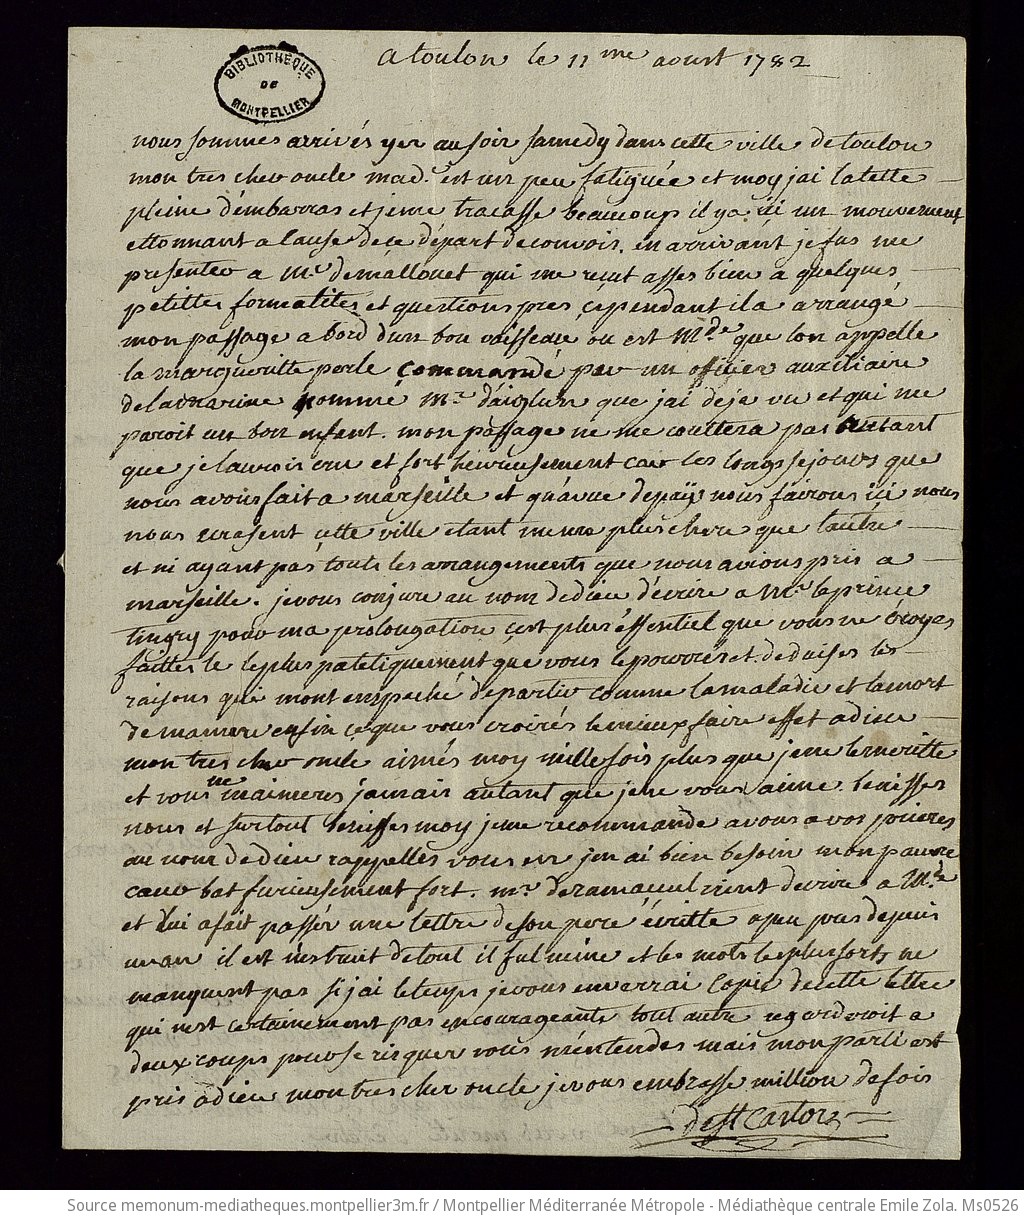 a toulon le 11me aoust 1782
BIBLIOTHÈQUE
DE
MONTPELLIER
nous sommes arrivés yer au soir samedy dans cette ville de toulon
mon tres cher oncle mad.e est un peu fatiguée et moy jai la tette
pleine d'embarras et je me tracasse beaucoup il ya ici un mouvement
ettonnant a cause de ce départ de convois. en arrivant je fus me
presenter a Mr. de mallouet qui me reçut asses bien a quelques
petittes formalites et questions pres cependant il a arrangé
mon passage a bord d'un bon vaisseau ou est Mde que lon appelle
la margueritte perle commandé par un officier auxiliaire
de la marine nommé Mr. d'aiglun que jai deja vu et qui me
paroit un bon enfant. mon passage ne me couttera pas autant
que je laurois cru et fort heureusement car les longs sejours que
nous avons fait a marseille et qu'avue depaïs nous fairons ici nous
nous ecrasent cette ville etant meme plus chere que lautre
et ni ayant pas touts les arrangements que nous avions pris a
marseille. je vous conjure au nom de dieu d'écrire a Mr. le prince
tingry pour ma prolongation c'est plus éssentiel que vous ne croyes
faittes le le plus patetiquement que vous le pourrés et deduises les
raisons qui mont enpeché de partir comme la maladie et la mort
de ma mere enfin ce que vous croirés le mieux faire effet adieu
mon tres cher oncle aimés moy mille fois plus que je ne le meritte
et vous ne maimeres jamais autant que je ne vous aime. benisses
nous et surtout benisses moy je me recommande a vous a vos prieres
au nom de dieu rappelles vous en jen ai bien besoin mon pauvre
cœur bat furieusement fort. mr. de ramatuel vient décrire a Mde
et lui a fait passér une lettre de son pere écritte apeu pres depuis
un an il est instruit de tout il fulmine et les mots les plus forts ne
manquent pas si jai le temps je vous enverrai copie de cette lettre
qui n'est certainement pas encourageante tout autre regarderoit a
deux coups pour se risquer vous m'entendes mais mon parti est
pris adieu mon tres cher oncle je vous embrasse million de fois
de st Cartor
Source memonum-mediatheques.montpellier3m.fr / Montpellier Méditerranée Métropole - Médiathèque centrale Emile Zola. Ms0526